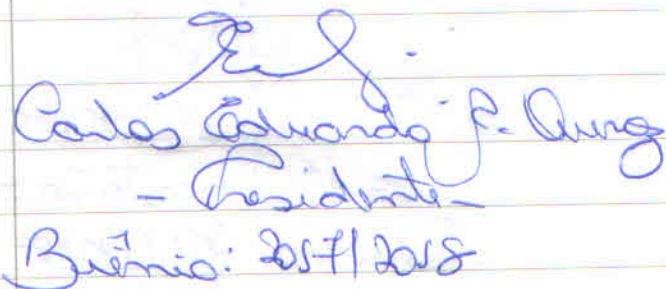 Carlos Eduardo
- Presidente -
Biênio: 2017/2018